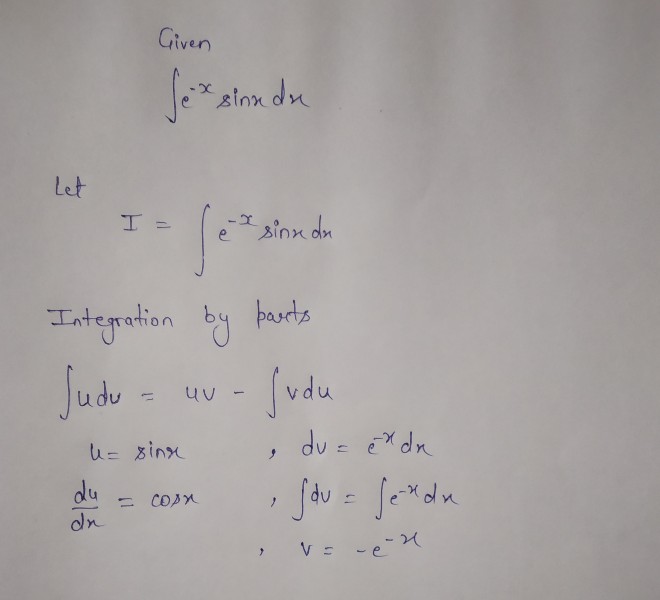 Given
∫e⁻ˣ sinx dx
Let
I = ∫ e⁻ˣ sinx dx
Integration by parts
∫udv = uv - ∫vdu
u = sinx , dv = e⁻ˣ dx
du/dx = cosx , ∫dv = ∫e⁻ˣ dx
, v = -e⁻ˣ